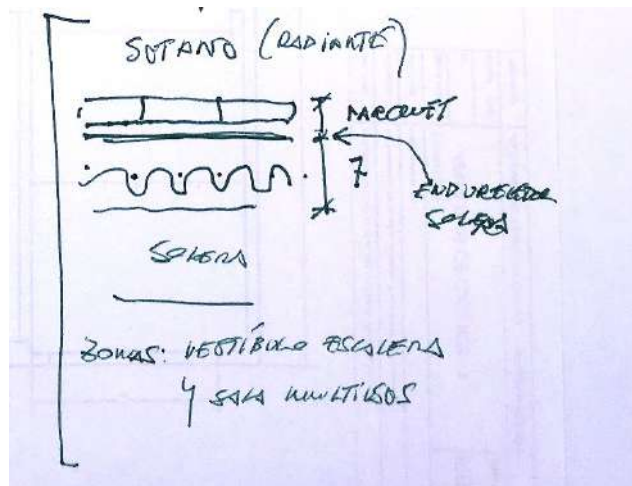 SOTANO (RADIANTE)
PARQUET
7
ENDURECEDOR
SOLERA
SOLERA
ZONAS: VESTÍBULO ESCALERA
Y SALA MULTIUSOS